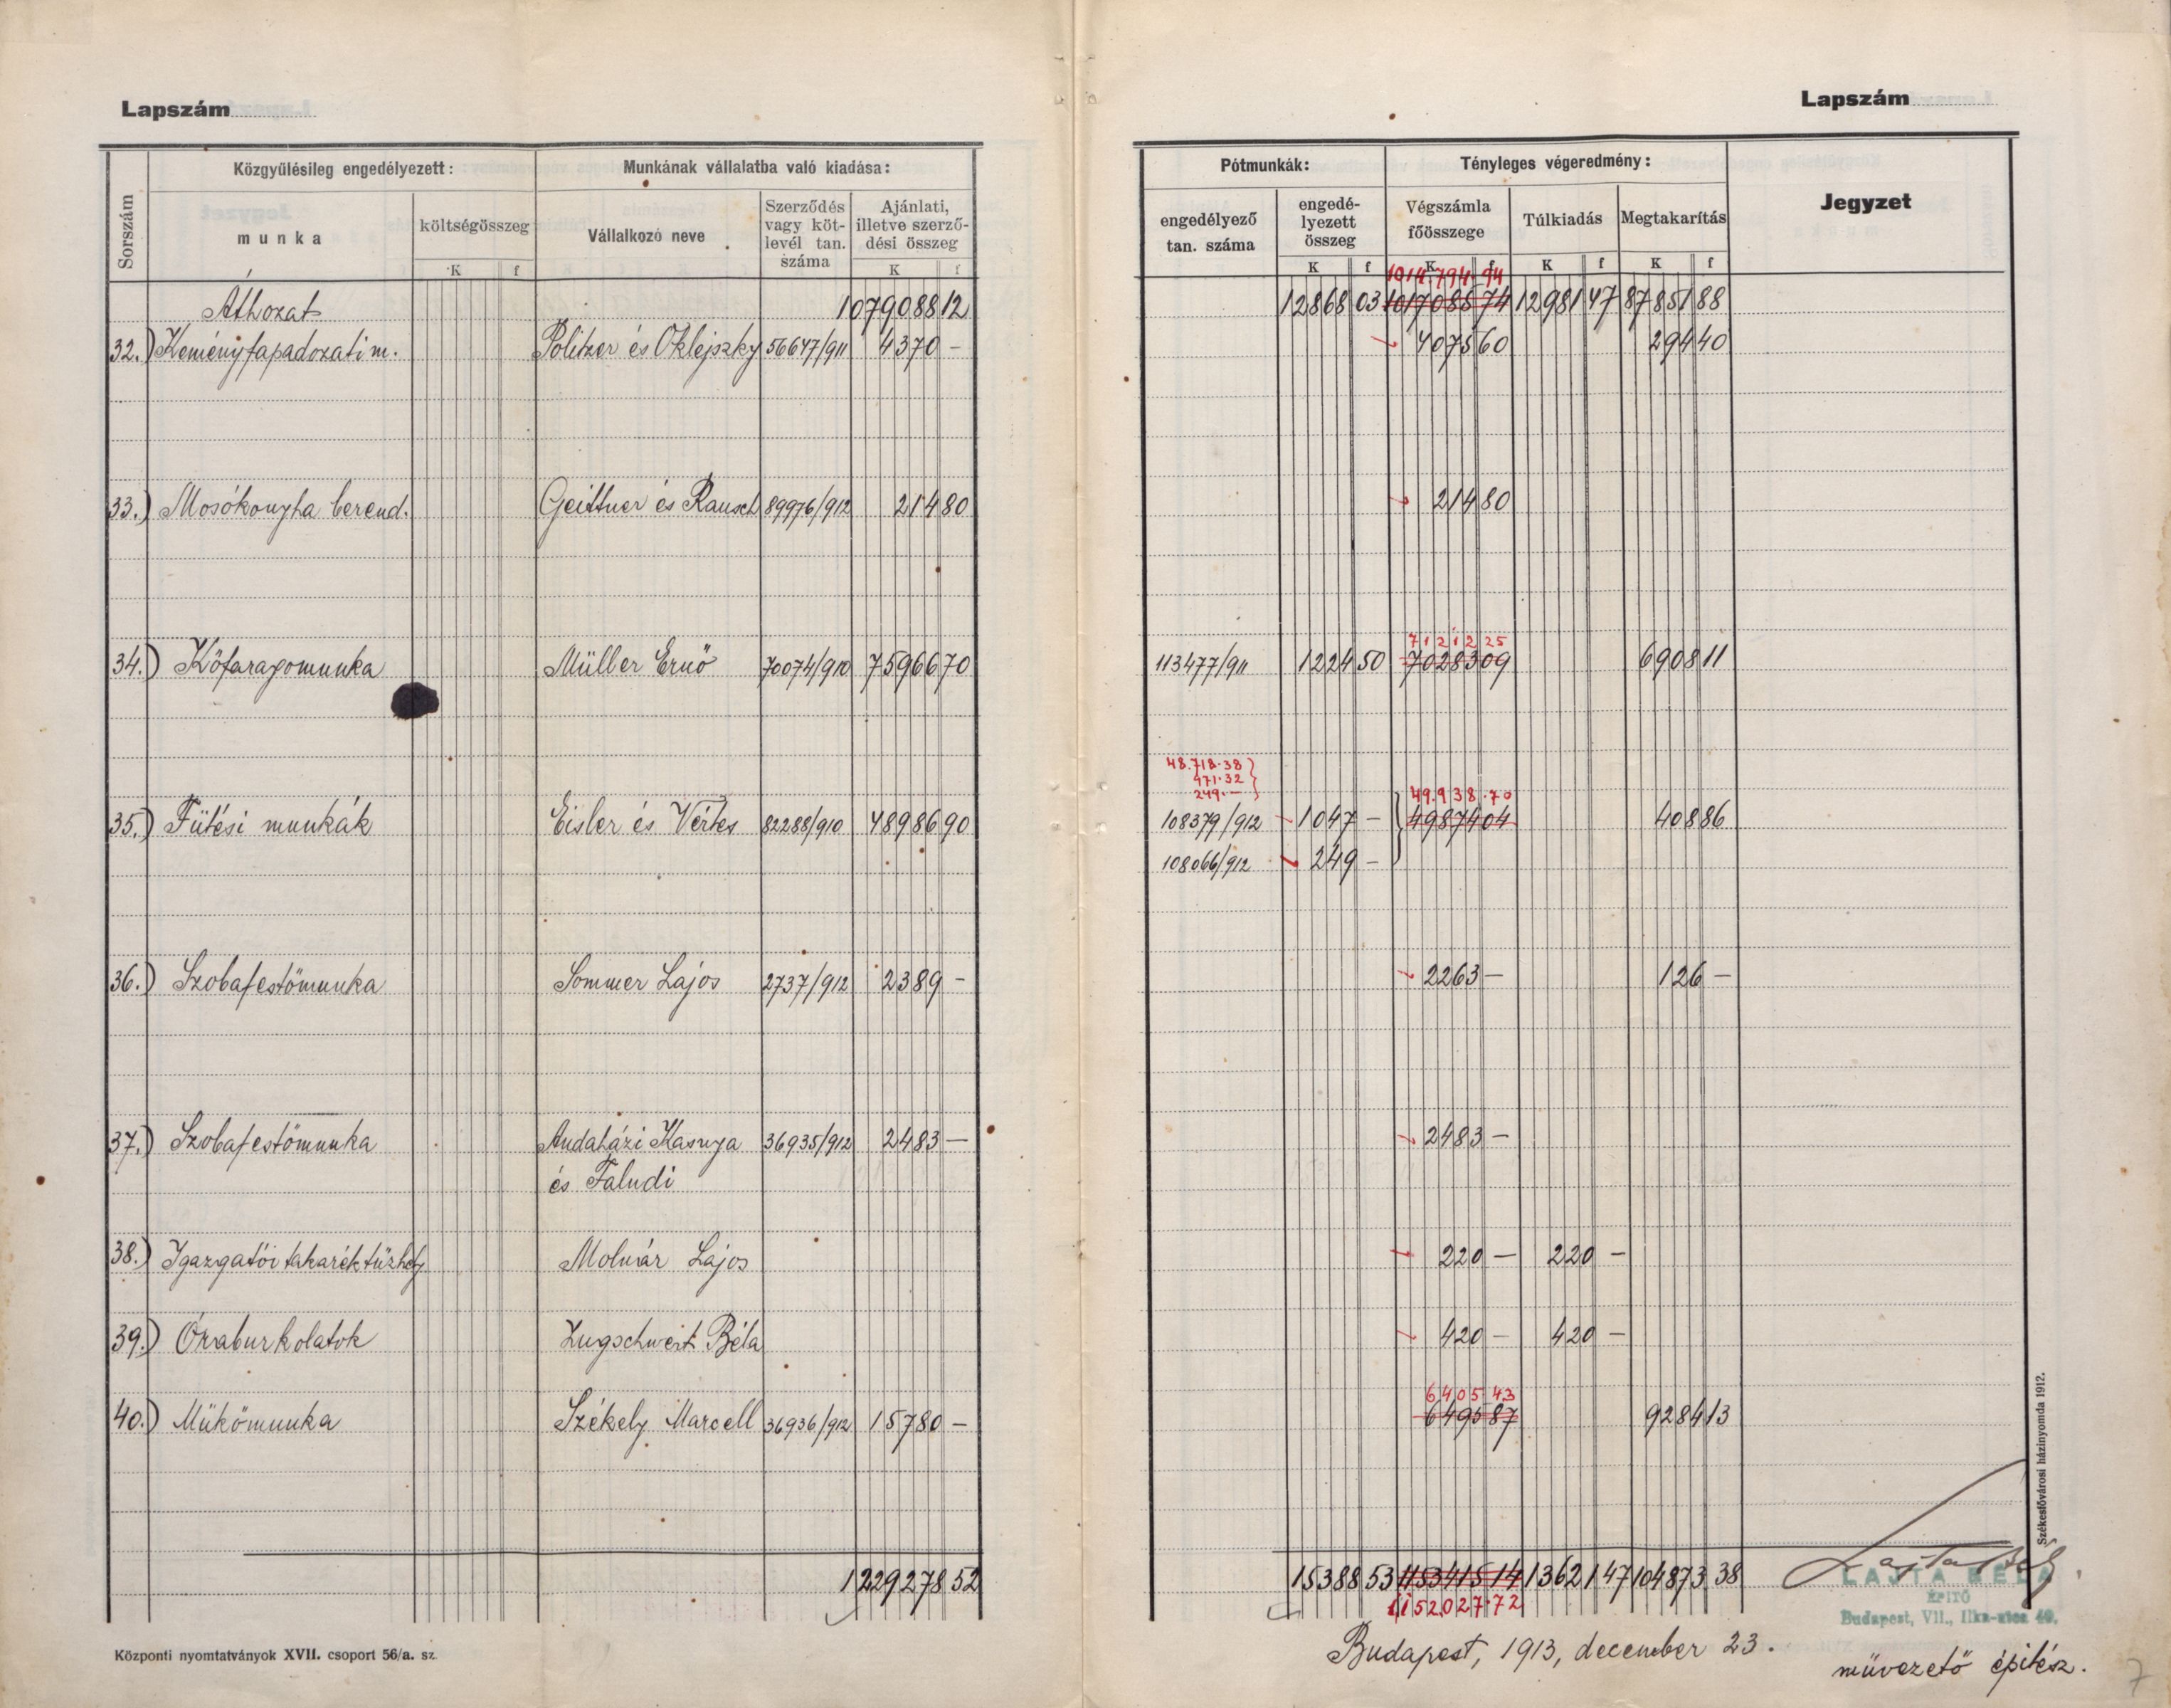 Lapszám
Lapszám
Sorszám
Közgyűlésileg engedélyezett:
Munkának vállalatba való kiadása:
munka
költségösszeg
K f
Vállalkozó neve
Szerződés vagy köt-levél tan. száma
Ajánlati, illetve szerző-dési összeg
K f
Pótmunkák:
Tényleges végeredmény:
Jegyzet
engedélyező tan. száma
engedé-lyezett összeg
K f
Végszámla főösszege
K f
Túlkiadás
K f
Megtakarítás
K f
1014.794.94
Áthozat 1079088 12 12868 03 1017085 74 12981 47 87851 88
32.) Keményfapadozati m. Politzer és Oklejszky 56647/911 4370 – 4075 60 294 40
33.) Mosókonyha berend. Geittner és Rausch 89976/912 214 80 214 80
71212 25
34.) Kőfaragomunka Müller Ernő 70074/910 75966 70 113477/911 1224 50 70283 09 6908 11
48.718.38
971.32
249.–
49.938.70
35.) Fütési munkák Eisler és Vértes 82288/910 48986 90 108379/912 1047 – 49874 04 408 86
108066/912 249 –
36.) Szobafestőmunka Sommer Lajos 2737/912 2389 – 2263 – 126 –
37.) Szobafestőmunka Andaházi Kasnya 36935/912 2483 – 2483 –
és Faludi
38.) Igazgatói takaréktűzhely Molnár Lajos 220 – 220 –
39.) Óraburkolatok Zugschwert Béla 420 – 420 –
6405 43
40.) Műkőmunka Székely Marcell 36936/912 15780 – 6495 87 9284 13
1229278 52 15388 53 1153415 14 13621 47 104873 38
1152.027.72
Lajta Béla
LAJTA BÉLA
ÉPITŐ
Budapest, VII., Ilka-utca 40.
Budapest, 1913, december 23.
művezető építész.
Központi nyomtatványok XVII. csoport 56/a. sz.
Székesfővárosi házinyomda 1912.
7